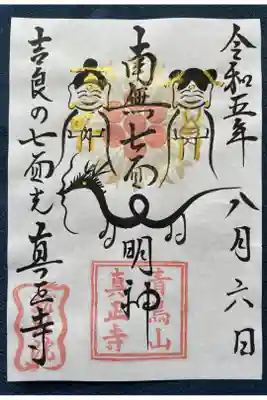 令和五年 八月六日
南無七面
明神
吉良の七面 真正寺
青鳥山
真正寺